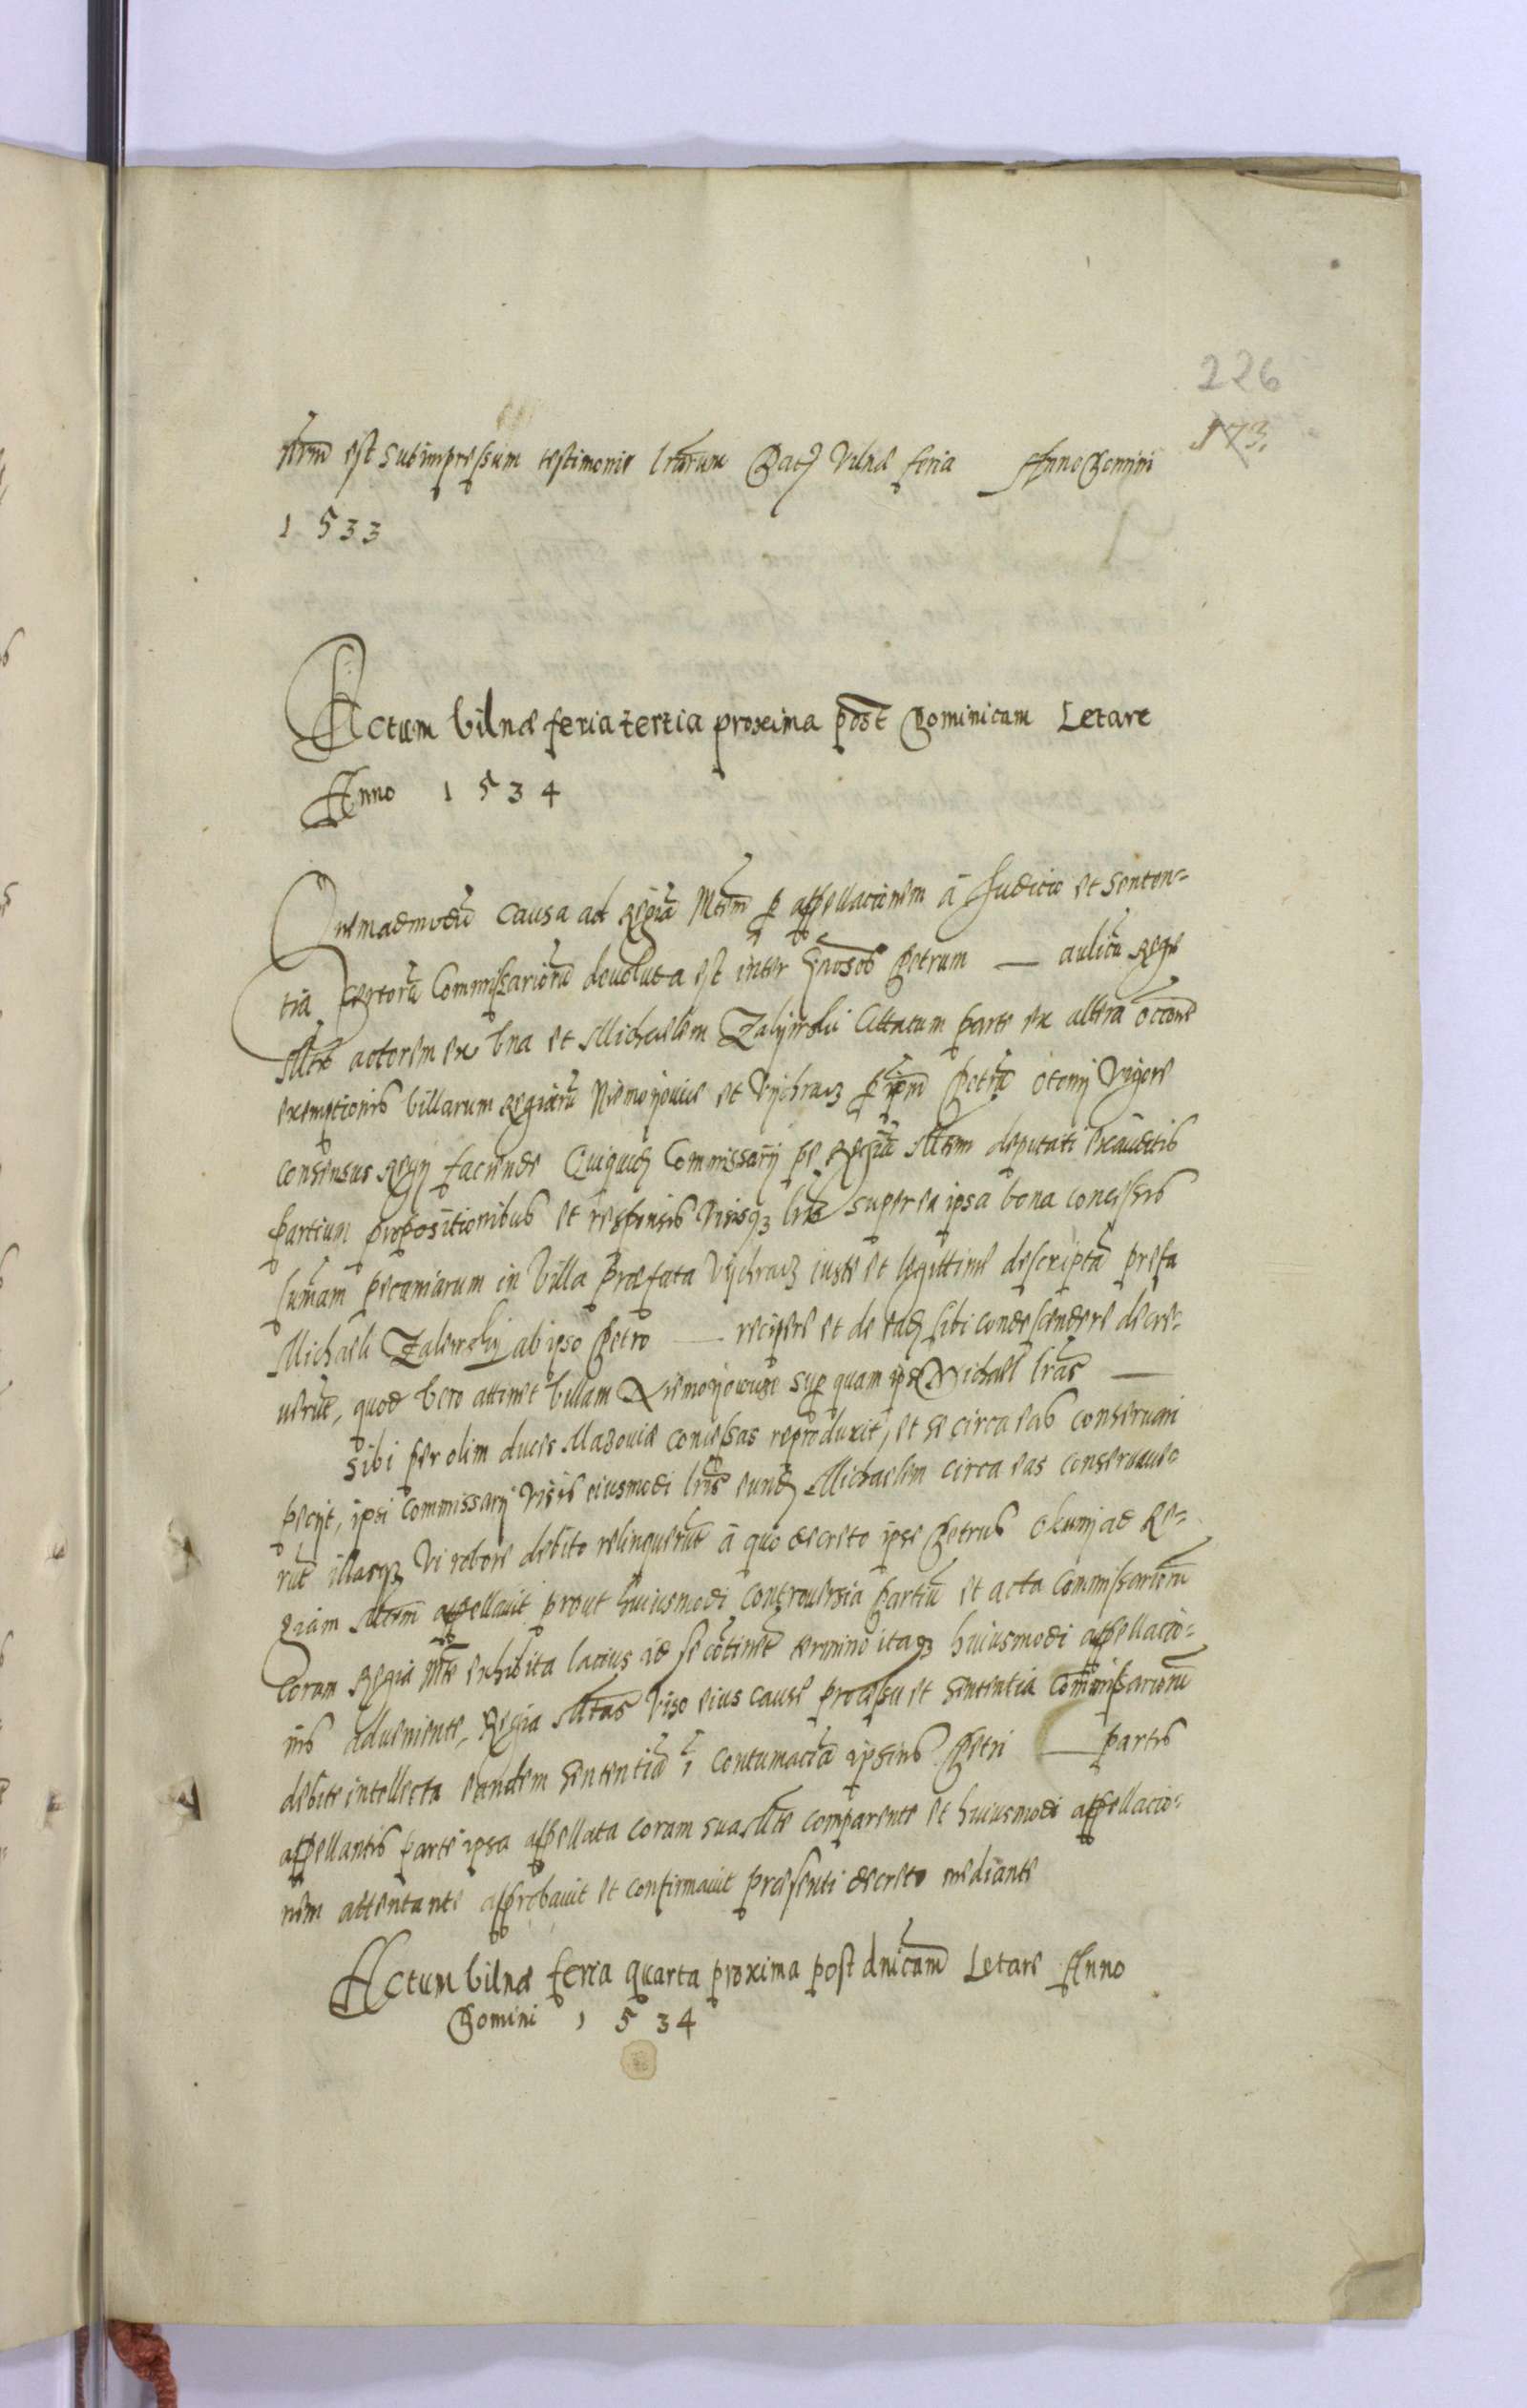 226
173.
nrm̄ est subimpressum testimonio lrarum Datȝ Vilnæ feria Anno Domini
1533
Actum Vilnæ feria tertia proxima post Dominicam Letare
Anno 1534
Quemadmodū causa ad Regiā Mtem p appellacionem à Judicio et Senten-
tia certorū Commissariorū devoluta est inter Gnosos Petrum — aulicū Regie
Mtis actorem ex una et Michaelem Zalijwskii Citatum parte ex altera occōne
exemptionis villarum Regiarū Niemoijovice et Vijchracz p ipm̄ Petrū
consensus Regij faciende Quiquidȝ Commissarij pe Regiā Mtem deputati exauditis
partium propositionibus et responsis visisqȝ lris super ex ipsa bona concessis
sum̄am pecuniarum in villa præfata Vijchracz iuste et legittime descriptā prefa
Michaeli Zalewskij ab ipso Petro — recipere et de eadȝ sibi condescendere decre-
verūt, quod vero attinet villam Niemoijowicze sup quam ipse Michael lrās —
sibi per olim duces Mazoviæ concessas reproduxit, et se circa eas conservari
pecijt, ipsi commissarij visis eiusmodi lris eundȝ Michaelem circa eas conservave-
rūt illasqȝ vi robore debito relinquerūt à quo decreto ipse Petrus ad Re-
giam Mtem appellavit prout huiusmodi controversia partiū et acta Commissariorū
coram Regia Mte exhibita lacius id se cōtinet termino itaqȝ huiusmodi appellacio-
nis adveniente, Regia Mtas viso eius cause processu et sententia Commissariorū
debite intellecta eandem sententiā ī contumaciā ipsius Petri — partis
appellantis parte ipsa appellata coram sua Mte comparente et huiusmodi appellacio-
nem attentante approbavit et confirmavit præsenti decreto mediante
Actum Vilnæ feria quarta proxima post dnicam Letare Anno
Domini 1534